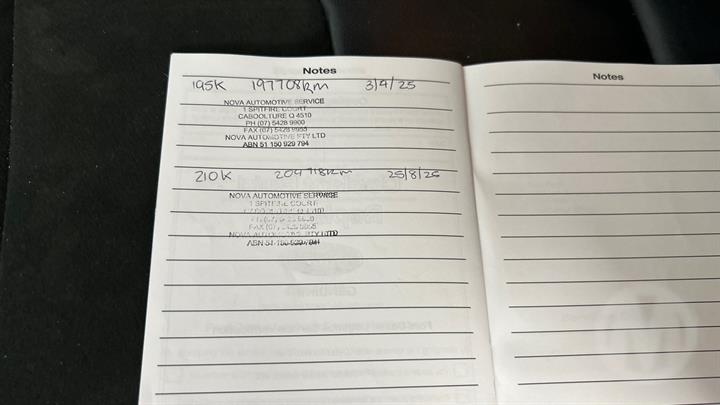 Notes
195K 197708km 3/4/25
NOVA AUTOMOTIVE SERVICE
1 SPITFIRE COURT
CABOOLTURE Q 4510
PH (07) 5428 9900
FAX (07) 5428 9955
NOVA AUTOMOTIVE PTY LTD
ABN 51 150 929 794
210K 209718km 25/8/25
NOVA AUTOMOTIVE SERVICE
1 SPITFIRE COURT
FAX (07)
NOVA AUTOMOTIVE PTY LTD
ABN 51 150 929 794
Notes